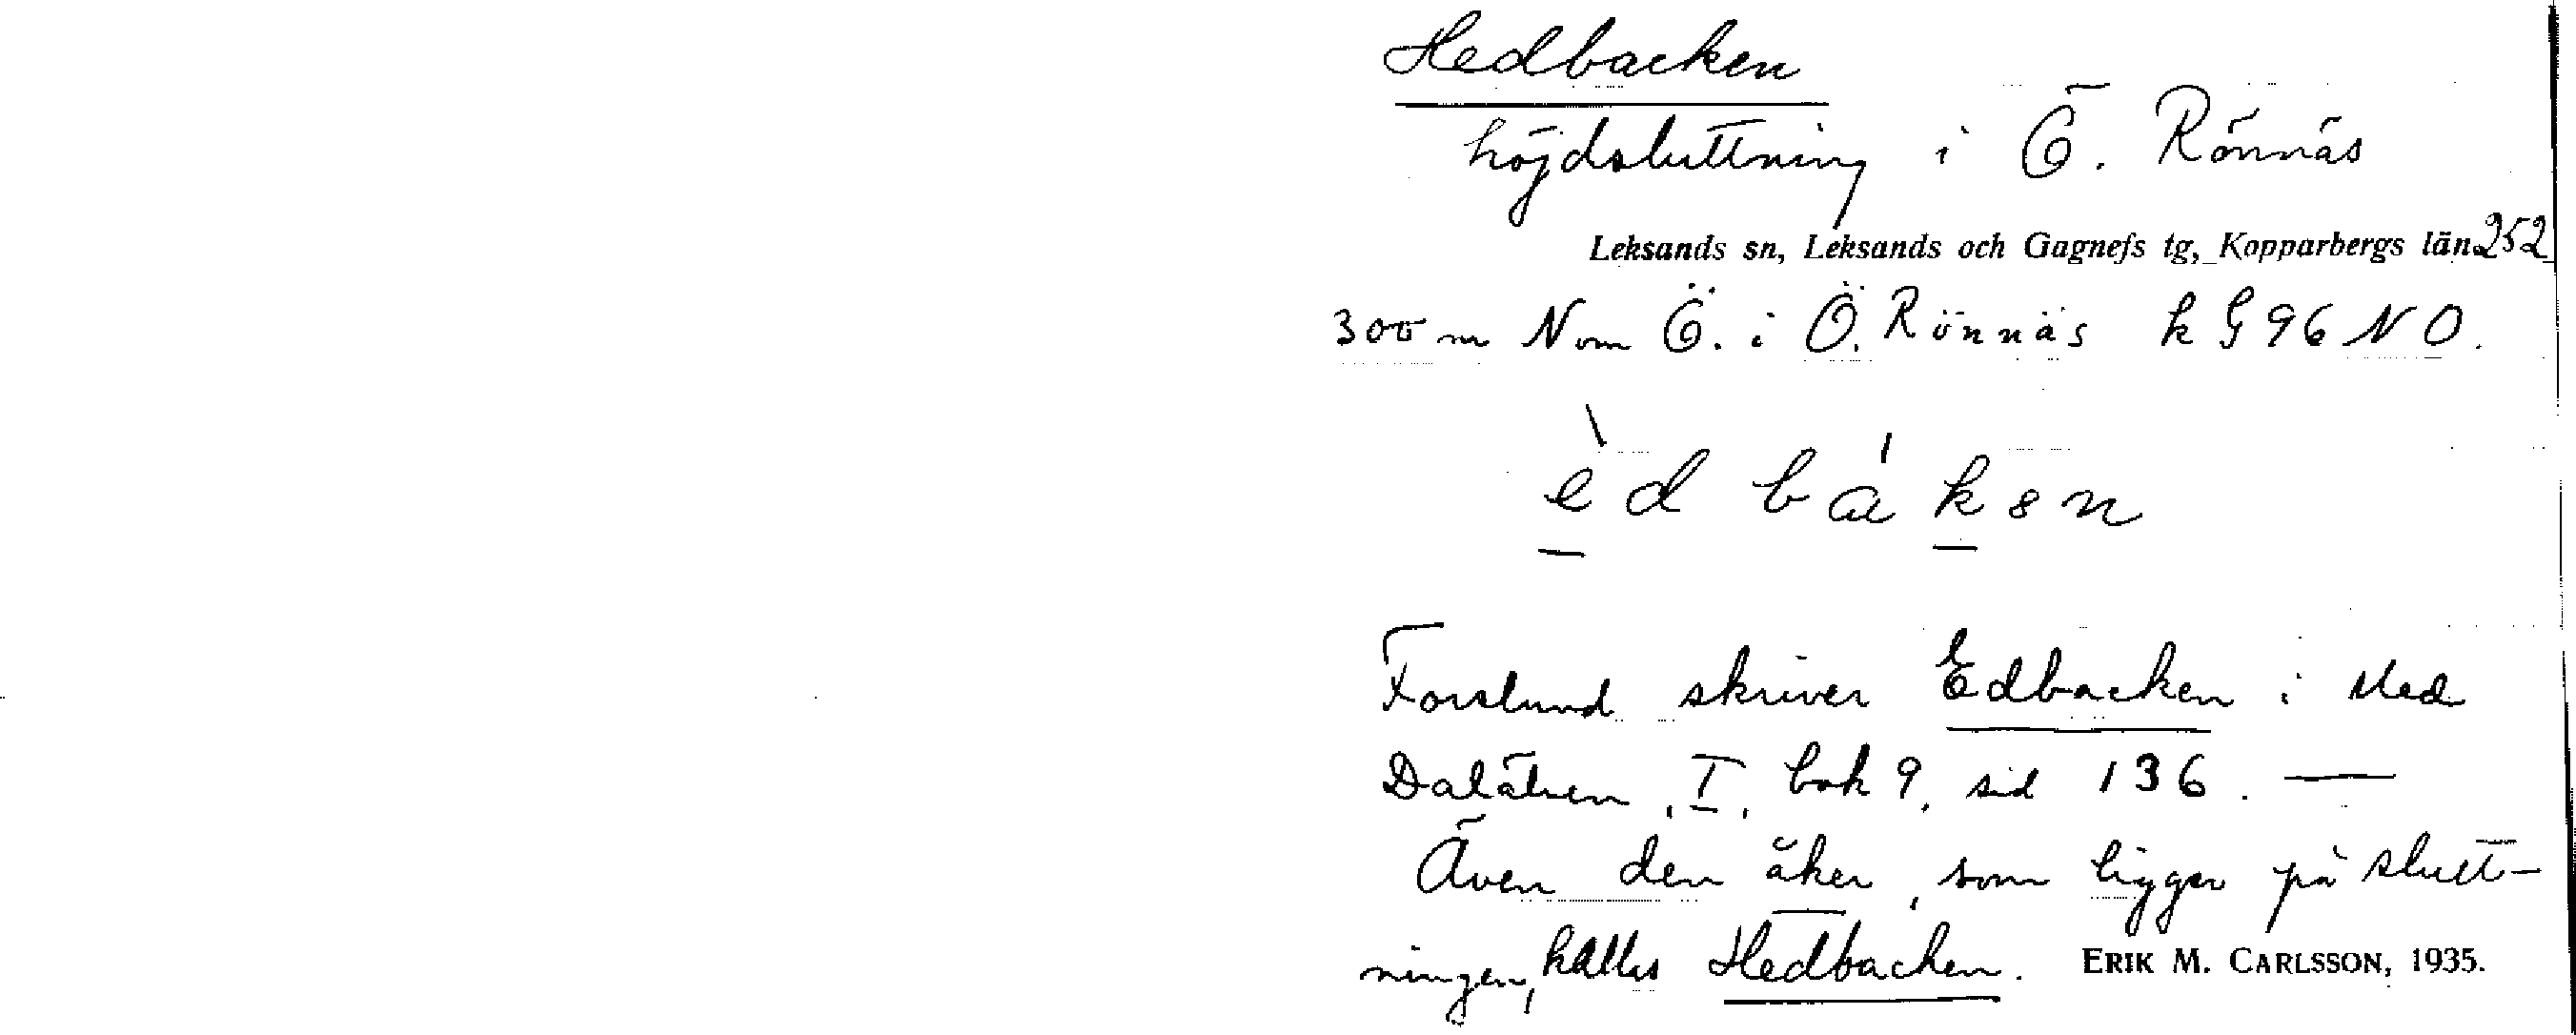 Hedbacken
höjdsluttning i Ö. Rönnäs
Leksands sn, Leksands och Gagnefs tg, Kopparbergs län 252
300 m N om Ö. i Ö. Rönnäs k G 96 NO.
Forslund skriver Edbacken i Med
Dalälven, I, bok 9, sid 136. —
Även den åker, som ligger på slutt-
ningen, kallas Hedbacken. ERIK M. CARLSSON, 1935.